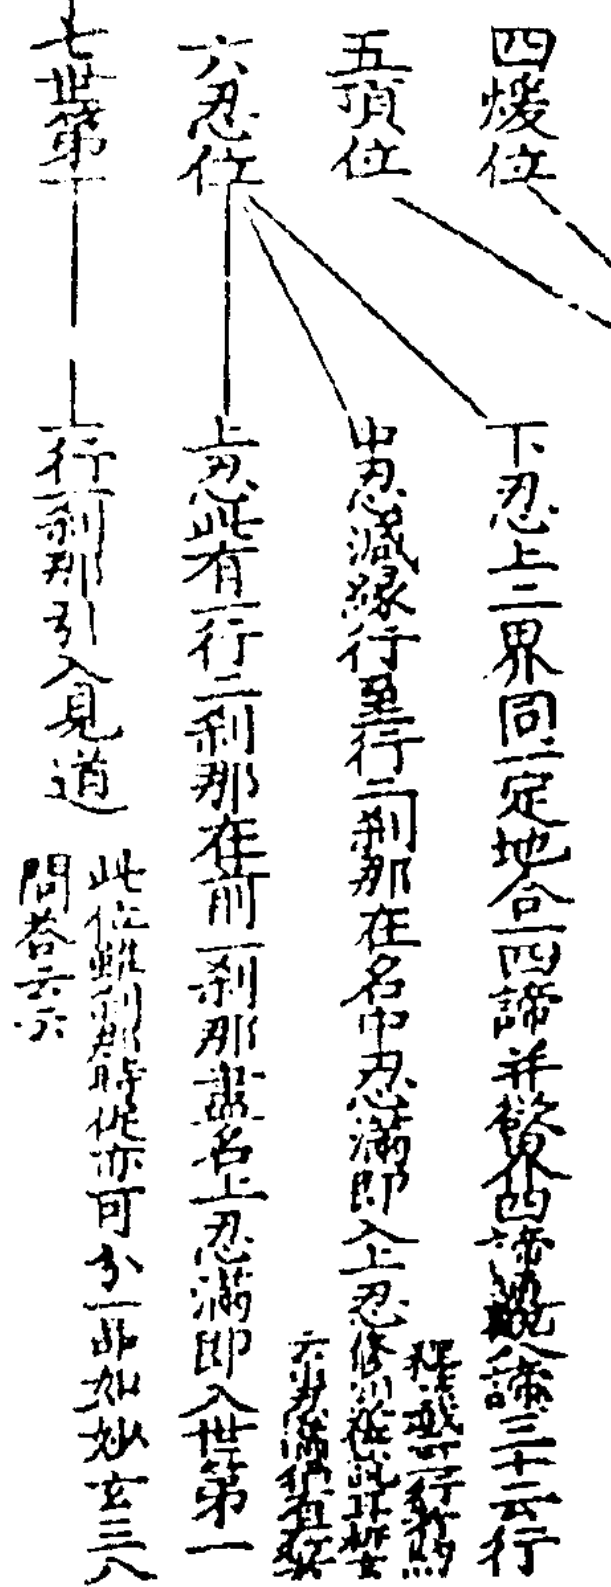 四煖位
五頂位
六忍位
七世第一
下忍上二界同一定地合一四諦并欲界四諦為八諦三十二行
中忍減緣行至一行二刹那在名中忍滿即入上忍
上忍此有一行二刹那在前一刹那盡名上忍滿即入世第一
一行一刹那引入見道
此位雖刹那時促亦可分一品如妙玄三八
問答云云